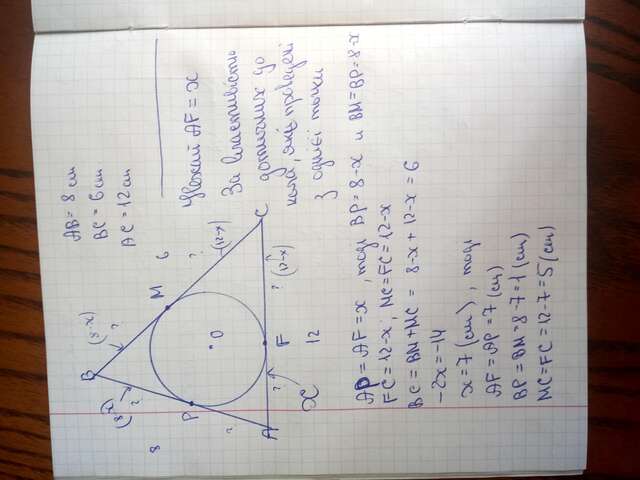 AB = 8 см
BC = 6 см
AC = 12 см
Нехай AF = x
За властивістю
дотичних до
кола, які проведені
з однієї точки
B
(8-x)
?
M
6
?
(12-x)
C
(8-x)
?
8
P
O
?
(12-x)
?
?
A
x
F
12
AP = AF = x, тоді BP = 8-x и BM = BP = 8-x
FC = 12-x, MC = FC = 12-x
BC = BM + MC = 8-x + 12-x = 6
-2x = -14
x = 7 (см), тоді
AF = AP = 7 (см)
BP = BM = 8-7 = 1 (см)
MC = FC = 12-7 = 5 (см)